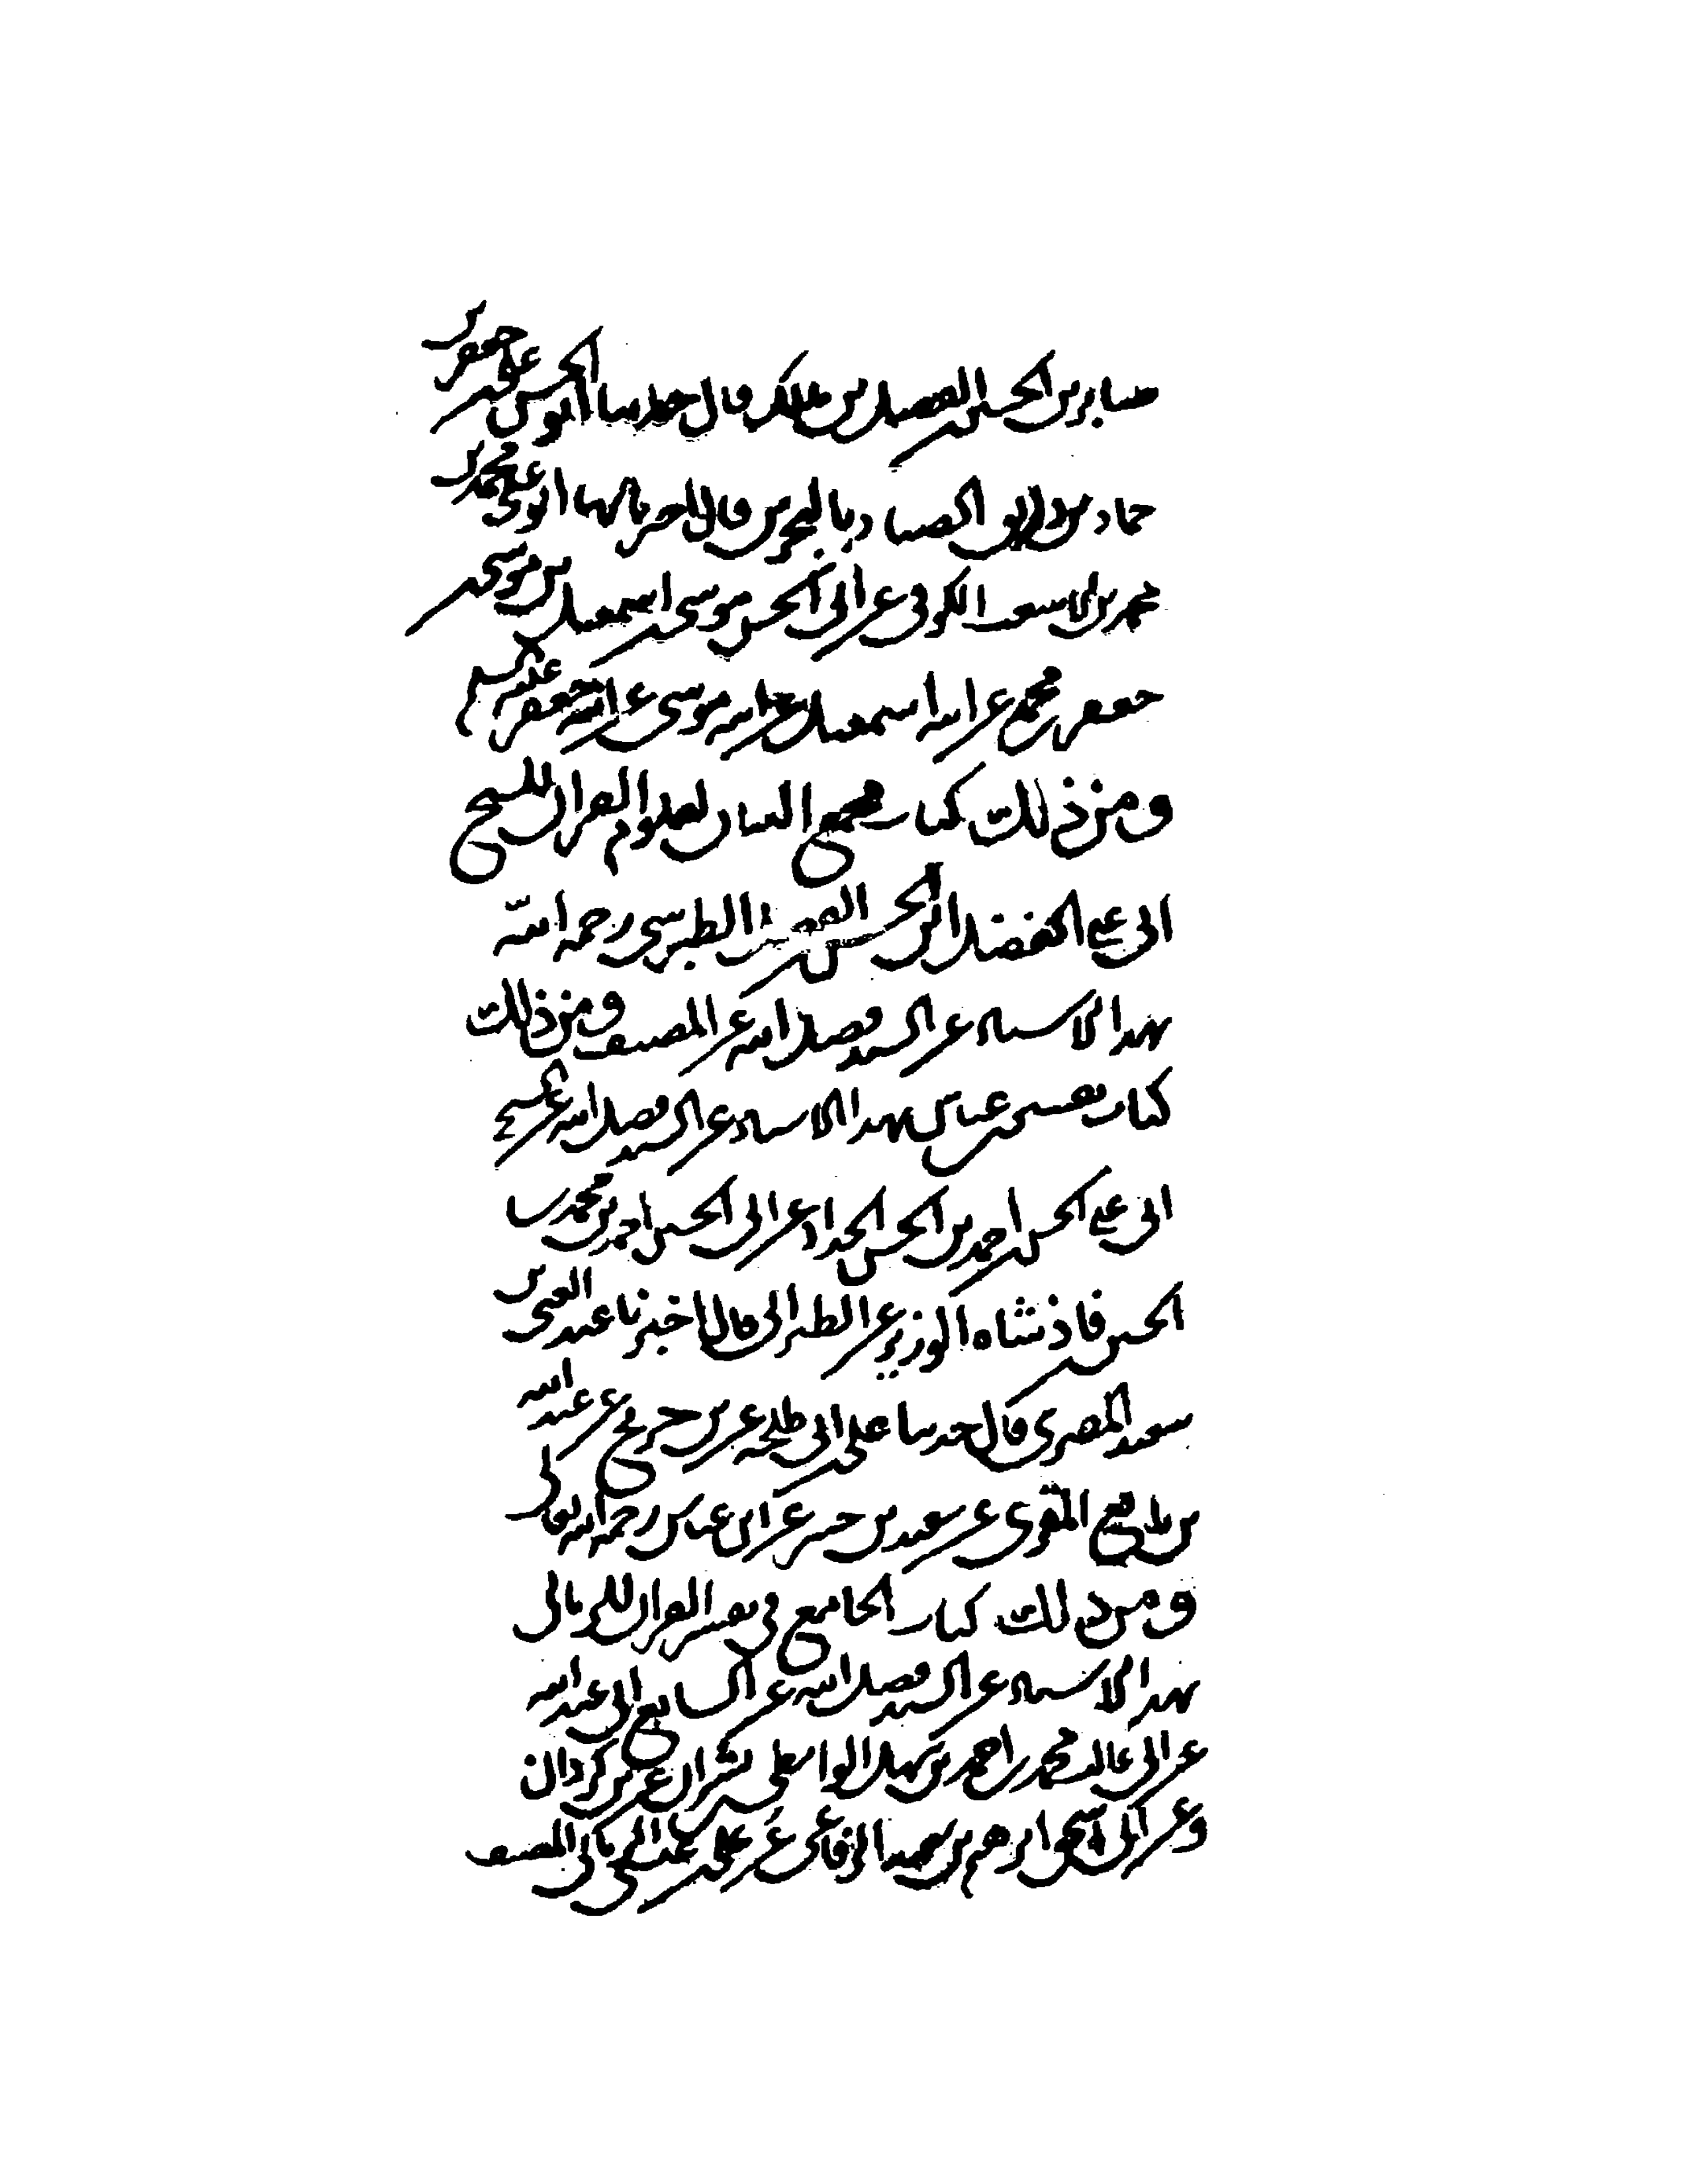 صابر بن الحسن الفضل بن مالك قال حدثنا ابو الحسن على جعفر بن
حماد بن الصياد بالبحرين قال اخبرنا بها ابو على محمد بن
محمد بن الاشعث الكوفى عن ابى الحسن موسى اسمعيل بن موسى
جعفر محمد عن ابيه اسمعيل عن ابيه موسى عن ابيه جعفر عليهم السلم
ومن ذلك كتاب مجمع البيان لعلوم القران للشيخ
ابى على الفضل بن الحسن الفضل الطبرسى رحمه الله
بهذا الاسناد عن السيد فضل الله عن المصنف ومن ذلك
كتاب تفسير عباس بهذا الاسناد عن السيد فضل الله عن الشيخ
ابى على الحسن احمد بن الحسن الحداد عن ابى الحسين احمد بن محمد بن
الحسين فاذشاه الوزير عن الطبرانى قال اخبرنا عبد الغنى بن
سعيد المصرى قال حدثنا على ابى طلحه عن بن جريج عن عبد الله
بن المقرى عن سعيد بن جبير عن ابن عباس رحمه الله تعالى
ومن ذلك كتاب الجامع فى تفسير القران للرمانى
بهذا الاسناد عن السيد فضل الله عن ابى عبد الله
عن ابى غالب محمد بن احمد بن سهل الواسطى بشران عن بن كردان
وعن ابى اسحق ابرهيم بن سعيد الرفاعى عن على الرمانى المصنف